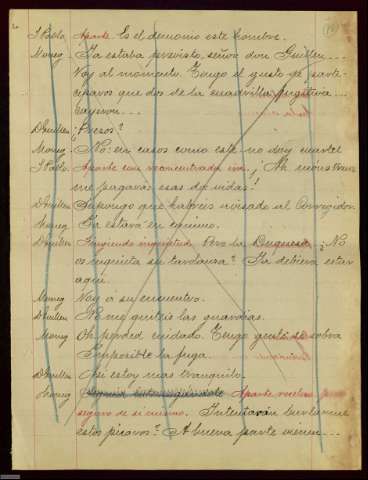 S Pablo Aparte Es el demonio este hombre.
Moneg Ya estaba previsto, señor don Guillen....
Voy al momento. Tengo el gusto de parti-
ciparos que dos de la cuadrilla fugitiva....
cayeron...
D Guillen ¿Presos?
Moneg No: en casos como este no doy cuartel
S Pablo Aparte con reconcentrada ira ¡Ah
me pagarás esas dos vidas!
D Guillen Supongo que habreis avisado al Corregidor.
Moneg Ya estará en camino.
D Guillen Fingiendo inquietud Pero la Duquesa, ¿No
os inquieta su tardanza? Ya debiera estar
aquí.
Moneg Voy á su encuentro.
D Guillen No me quiteis las guardias.
Moneg Oh perded cuidado. Tengo gente de sobra
Imposible la fuga.
D Guillen Asi estoy mas tranquilo.
Moneg Aparte vuelve
seguro de si mismo. Intentarán burlarme
estos pícaros? A buena parte vienen...